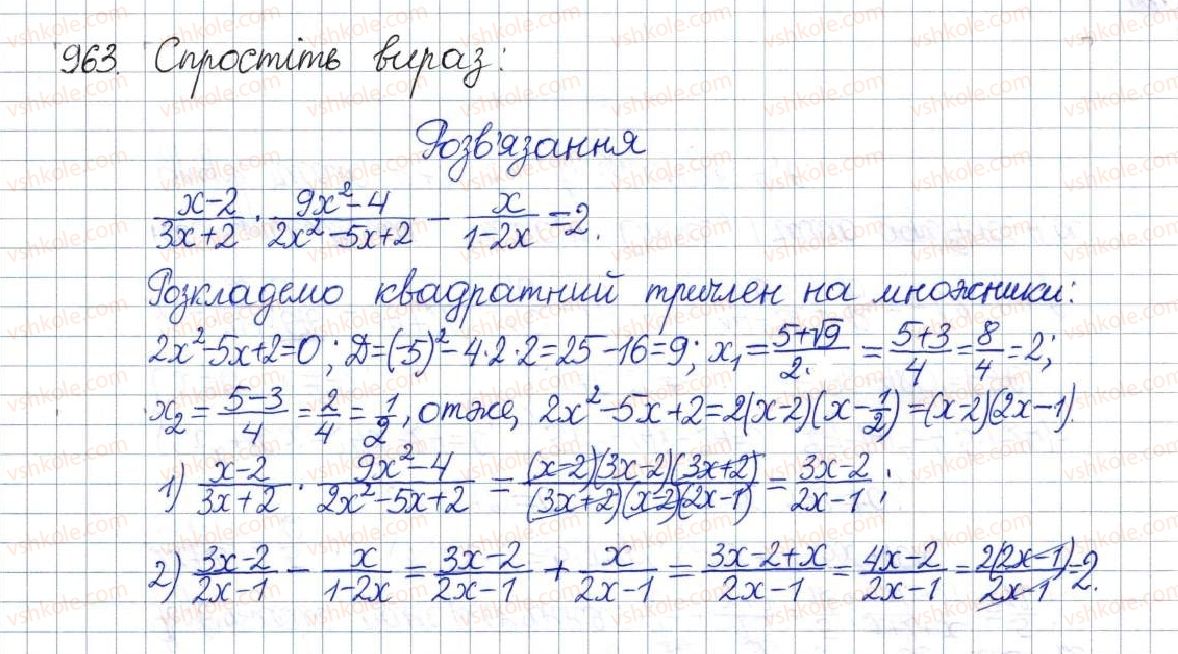 963. Спростіть вираз:
Розв'язання
(x-2)/(3x+2) · (9x²-4)/(2x²-5x+2) - x/(1-2x) = 2.
Розкладемо квадратний тричлен на множники:
2x²-5x+2=0; D=(-5)²-4·2·2=25-16=9; x₁=(5+√9)/2. = (5+3)/4 = 8/4 = 2;
x₂ = (5-3)/4 = 2/4 = 1/2, отже, 2x²-5x+2=2(x-2)(x-1/2)=(x-2)(2x-1).
1) (x-2)/(3x+2) · (9x²-4)/(2x²-5x+2) = (x-2)(3x-2)(3x+2)/(3x+2)(x-2)(2x-1) = (3x-2)/(2x-1);
2) (3x-2)/(2x-1) - x/(1-2x) = (3x-2)/(2x-1) + x/(2x-1) = (3x-2+x)/(2x-1) = (4x-2)/(2x-1) = 2(2x-1)/(2x-1) = 2.
vshkole.com